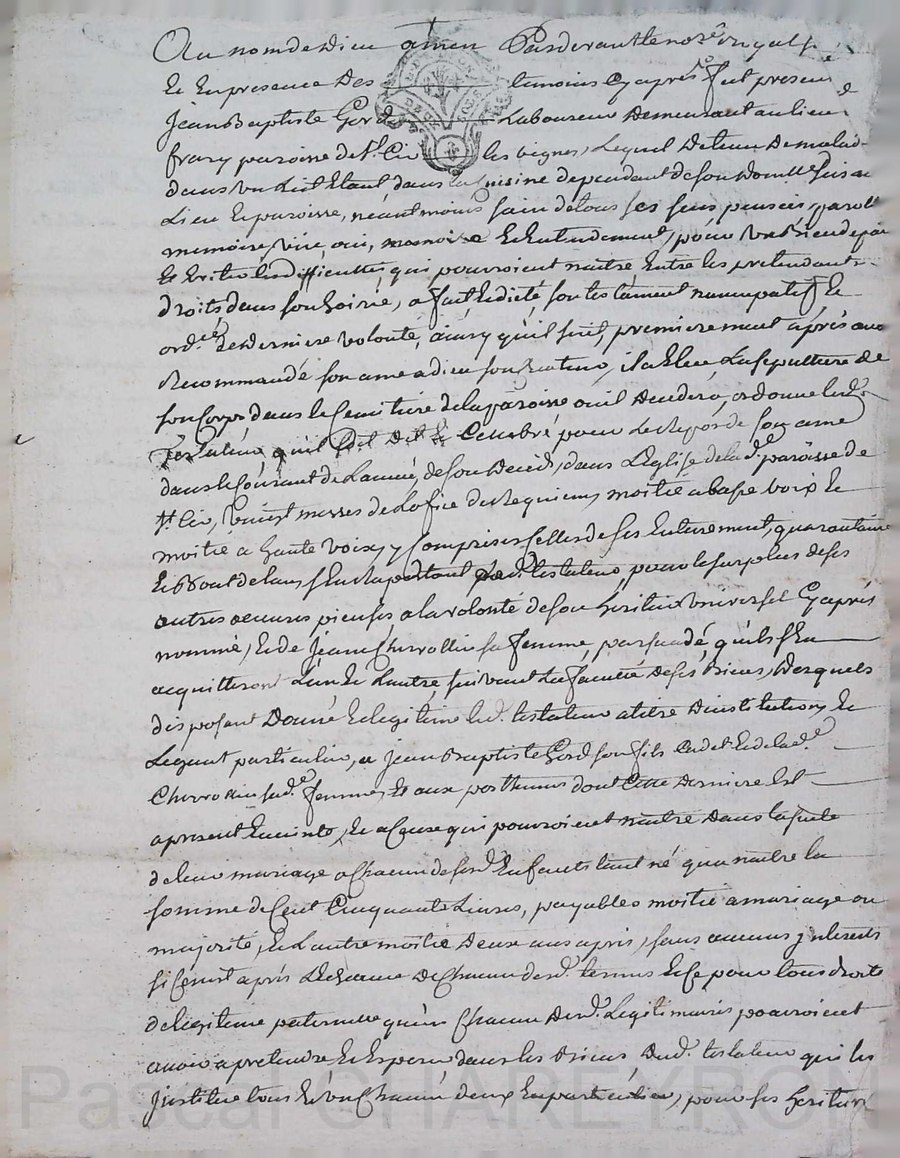 Au nom de Dieu amen Pardevant le no.re royal
Et en presence des temoins cy apres fut present
Jean Baptiste Gord Laboureur demeurant au lieu de
frary paroisse de s.t Cir les vignes, Lequel detenu de malad
dans un Lit Etant dans la Cuisine dependant de son domicile
Lieu Et paroisse, néantmoins sain de tous ses sens pensées, parolle
memoire, vüe, oui, memoire Et Entendement, pour
Et Eviter les difficultés, qui pourroient naitre Entre les pretendants
droits dans son hoirie, a fait Et dicté, son testament nuncupatif Et
ord.re de derniere volonté, ainsy qu'il suit, premierement après avoir
Recommandé son ame a dieu son Createur, il a Elu La sepulture de
son Corps, dans le Cemitiere de la paroisse ou il decedera, ordonne led.
Testateur qu'il soit dit Et Celebré pour le Repos de son ame
dans le Courant de L'année de son deced, dans L'Eglise de lad. paroisse de
s.t Cir, vingt messes de L'ofice de Requiem, moitié a basse voix Et
moitié a haute voix, y Comprises Celles de ses Enterrement, quarantaine
Et bout de l'an s'En rapportant led. testateur, pour le surplus de ses
autres oeuvres pieuses a la volonté de son heritier universel Cy après
nommé, Et de Jeanne Chevrottin sa femme, persuadé, qu'ils s'En
acquitteront L'un Et L'autre suivant La faculté de ses biens, desquels
disposant Donne Et legitime led. testateur a titre d'institution, Et
Legat particulier, a Jean Baptiste Gord son fils Cadet Et de lad.e
Chevrottin sad.e femme, Et aux posthumes dont Cette derniere Est
apresent Enceinte, Et a Ceux qui pourroient naitre dans la suite
de leur mariage a Chacun de sesd. Enfants tant né qu'a naitre la
somme de Cent Cinquante Livres, payables moitié a mariage ou
majorité, Et L'autre moitié deux ans après, sans aucuns interests
si Cenest après L'Echeance de Chacun desd. termes Et Ce pour tous droits
de legitime paternelle qu'un Chacun desd. Legitimaires pourroient
avoir a pretendre Et Esperer, dans les biens dud. testateur qui les
Institue tous Et un Chacun d'eux En particulier, pour ses heritiers
Pascal CHAREYRON